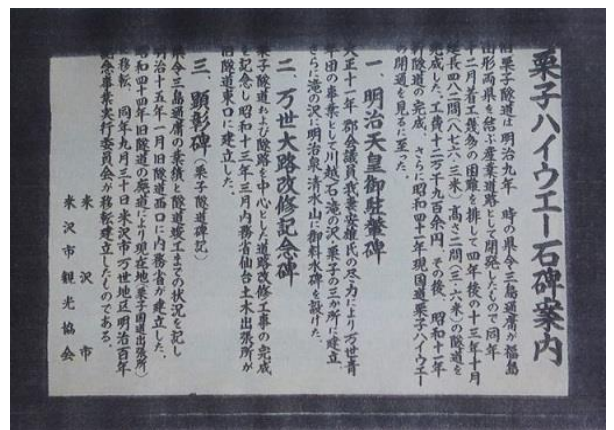 栗子ハイウエー石碑案内
旧栗子隧道は明治九年、時の県令三島通庸が福島
山形両県を結ぶ産業道路として開発したもので、同年
十二月着工幾多の困難を排して四年後の十三年十月
延長四八二間(八七六・三米)高さ二間(三・六米)の隧道を
完成した。工費十二万千九百余円、その後、昭和十一年
新隧道の完成、さらに昭和四十一年現国道栗子ハイウエー
の開通を見るに至った。
一、明治天皇御駐輦碑
大正十一年 郡会議員我妻安雄氏の尽力により万世青
年団の事業として川越石、滝の沢、栗子の三か所に建立、
さらに滝の沢に明治泉、清水山に御料水碑を設けた。
二、万世大路改修記念碑
栗子隧道および隧路を中心とした道路改修工事の完成
を記念し昭和十三年三月内務省仙台土木出張所が
旧隧道東口に建立した。
三、顕彰碑(栗子隧道碑記)
県令三島通庸の業績と隧道竣工までの状況を記し
明治十五年一月旧隧道西口に内務省が建立した。
昭和四十四年旧隧道の廃道により現在地(栗子国道出張所)
に移転、同年九月三十日米沢市万世地区明治百年
記念事業実行委員会が移転建立したものである。
米沢市
米沢市観光協会